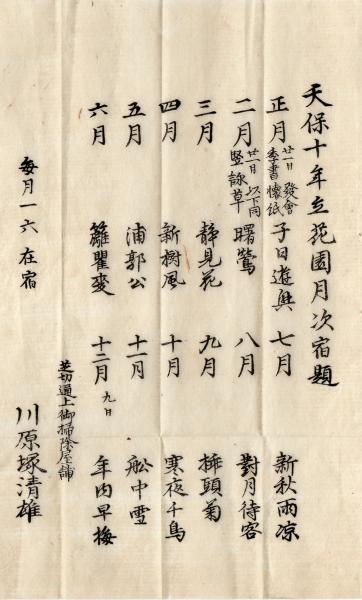 天保十年立花園月次宿題
正月 廿一日 發會 季書懐紙 子日遊興 七月 新秋雨凉
二月 廿一日 以下同 竪詠草 曙鶯 八月 對月待客
三月 静見花 九月 挿頭菊
四月 新樹風 十月 寒夜千鳥
五月 浦郭公 十一月 舩中雪
六月 籬瞿麥 十二月 九日 年内早梅
毎月一六 在宿
芝切通上御掃除屋舗
川原塚清雄